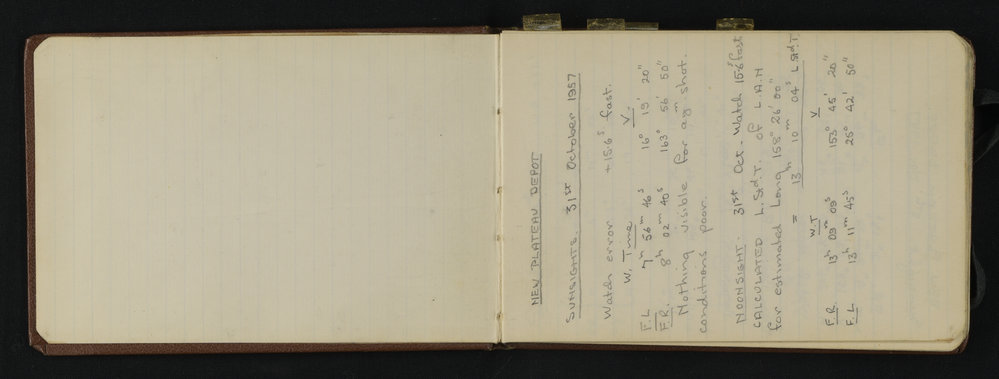 NEW PLATEAU DEPOT
SUNSIGHTS. 31st October 1957
Watch error +15.6s fast.
W. Time V.
F.L 7h 56m 46s 16° 19' 20"
F.R. 8h 02m 40s 163° 56' 50"
Nothing visible for azm shot.
conditions poor.
NOONSIGHT. 31st Oct - Watch 15.6s fast
CALCULATED L.Std.T. of L.A.N
for estimated Long 158° 26' 00"
= 13h 10m 04s L Std.T.
W.T V
F.R. 13h 09m 09s 153° 45' 20"
F.L 13h 11m 45s 26° 42' 50"